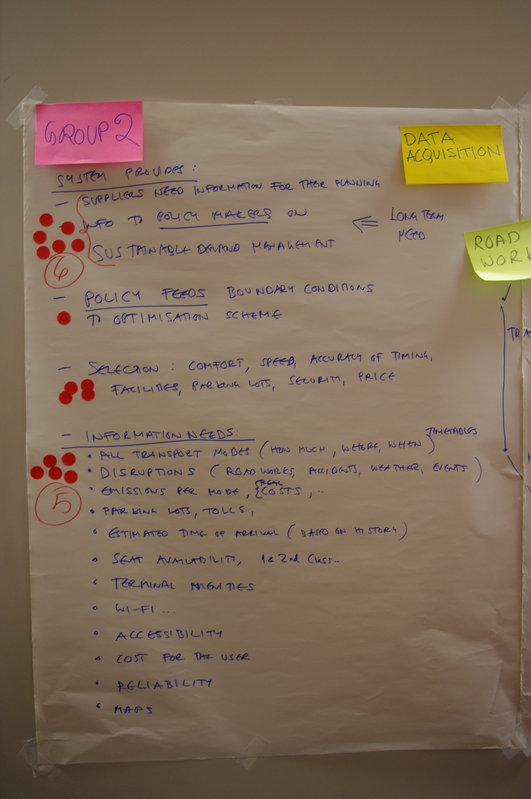 GROUP 2
DATA ACQUISITION
SYSTEM PROVIDES:
- SUPPLIERS NEED INFORMATION FOR THEIR PLANNING
INFO TO POLICY MAKERS ON
SUSTAINABLE DEMAND MANAGEMENT
⇐ LONG TERM
NEED
6
ROAD
WORK
- POLICY FEEDS BOUNDARY CONDITIONS
TO OPTIMISATION SCHEME
- SELECTION: COMFORT, SPEED, ACCURACY OF TIMING,
FACILITIES, PARKING LOTS, SECURITY, PRICE
- INFORMATION NEEDS:
• ALL TRANSPORT MODES (HOW MUCH, WHERE, WHEN) TIMETABLES
• DISRUPTIONS (ROAD WORKS, ACCIDENTS, WEATHER, EVENTS)
• EMISSIONS PER MODE, (REAL) COSTS, ..
5
• PARKING LOTS, TOLLS,
• ESTIMATED TIME OF ARRIVAL (BASED ON HISTORY)
• SEAT AVAILABILITY, 1 & 2nd Class...
• TERMINAL AMENITIES
• WI-FI ...
• ACCESSIBILITY
• COST FOR THE USER
• RELIABILITY
• MAPS